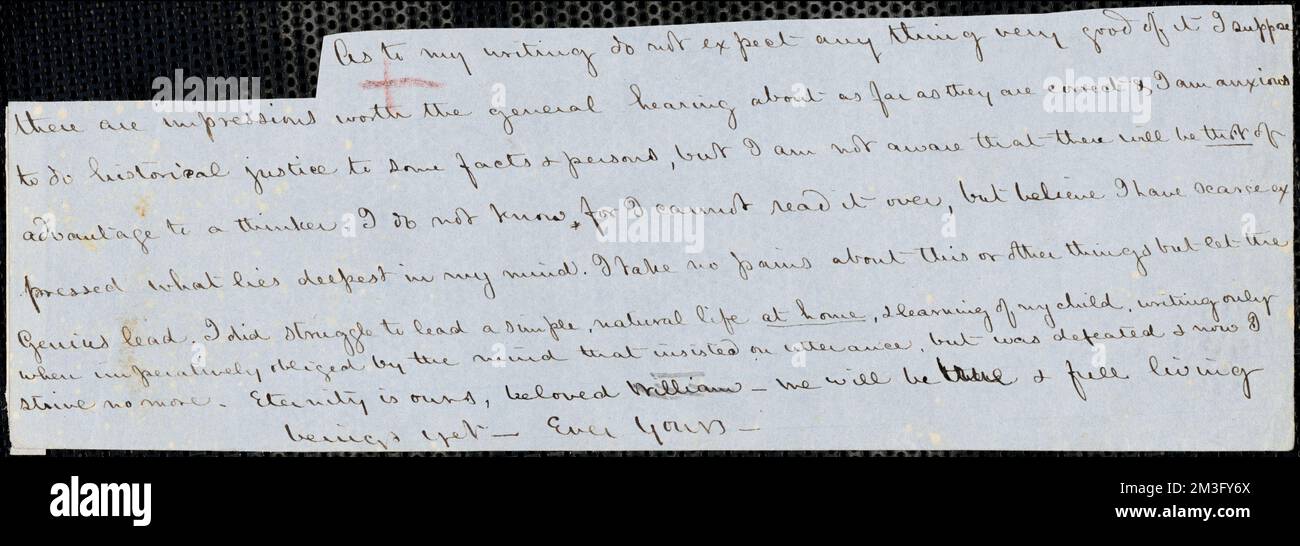 As to my writing do not expect any thing very good of it I suppose
there are impressions worth the general hearing about as far as they are correct & I am anxious
to do historical justice to some facts & persons, but I am not aware that there will be that of
advantage to a thinker. I do not know, for I cannot read it over, but believe I have scarce ex
pressed what lies deepest in my mind. I take no pains about this or other things but let the
Genius lead. I did struggle to lead a simple, natural life at home, & learning of my child, writing only
when imperatively obliged by the mind that insisted on utterance, but was defeated & now I
strive no more. Eternity is ours, beloved William - we will be true & full living
beings yet - Ever Yours -
alamy
alamy
alamy
Image ID: 2M3FY6X
www.alamy.com